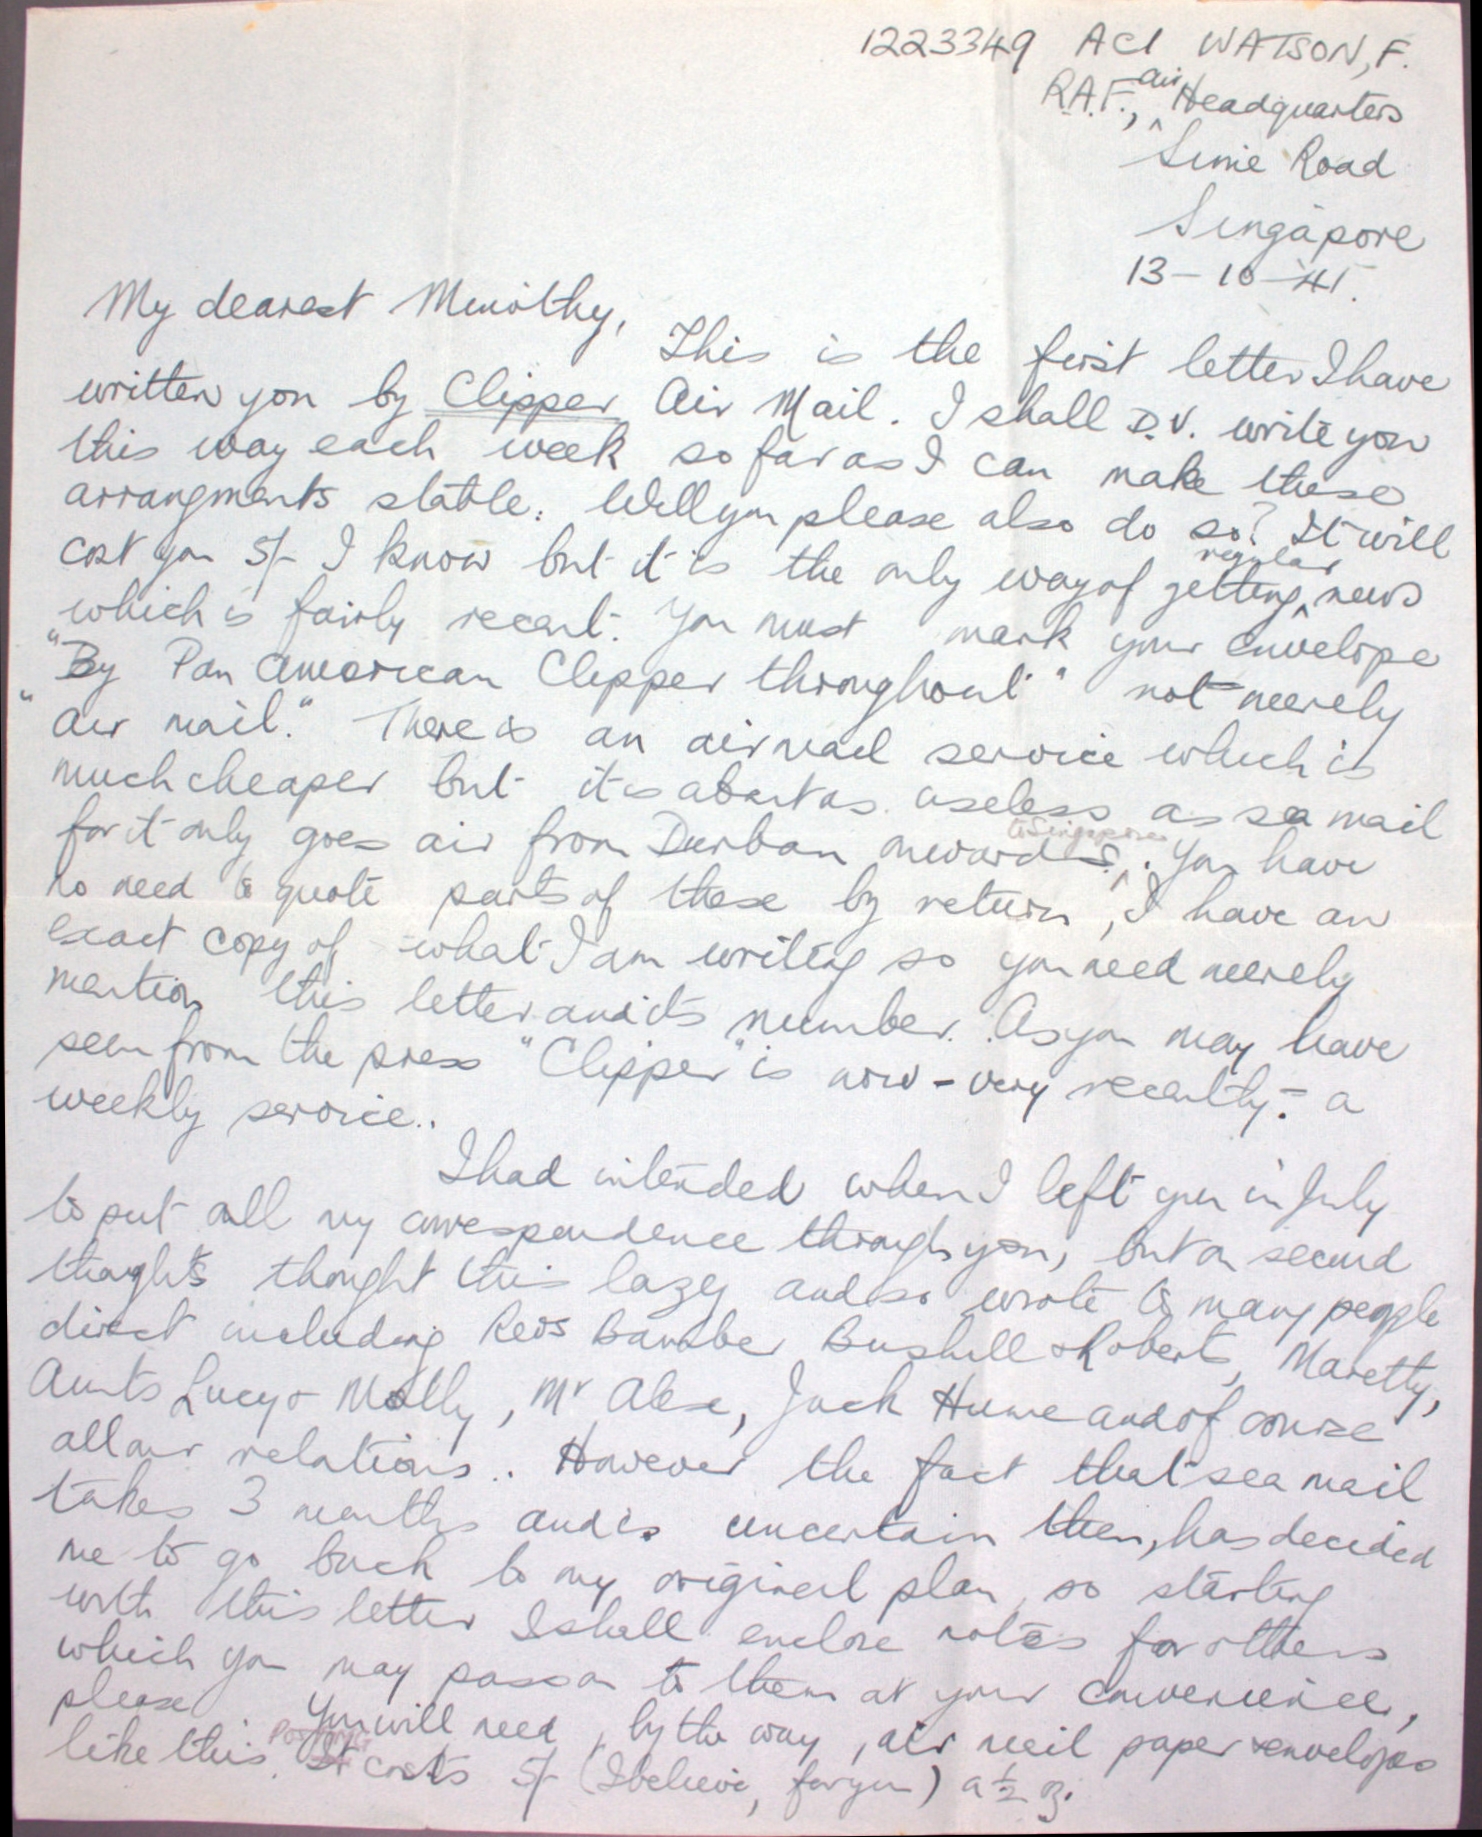 1223349 AC1 WATSON, F.
R.A.F., air Headquarters
Sime Road
Singapore
13-10-41.
My dearest
This is the first letter I have
written you by Clipper Air Mail. I shall D.V. write you
this way each week so far as I can make these
arrangments stable. Will you please also do so? It will
cost you 5/- I know but it is the only way of getting regular news
which is fairly recent. You must mark your envelope
"By Pan American Clipper throughout" not merely
"air mail." There is an air mail service which is
much cheaper but it is about as useless as sea mail
for it only goes air from Durban onwards to Singapore. You have
no need to quote parts of these by return, I have an
exact copy of what I am writing so you need merely
mention this letter and its number. As you may have
seen from the press "Clipper" is now - very recently - a
weekly service..
I had intended when I left you in July
to put all my correspondence through you, but on second
thoughts thought this lazy and so wrote to many people
direct including Revs Bamber Bushell & Roberts, Maretty,
Aunts Lucy & Molly, Mr Alex, Jack Hume and of course
all our relations.. However the fact that sea mail
takes 3 months and is uncertain then, has decided
me to go back to my original plan, so starting
with this letter I shall enclose notes for others
which you may pass on to them at your convenience,
please You will need, by the way, air mail paper & envelopes
like this. POSTING costs 5/- (I believe, for you) a ½ oz.